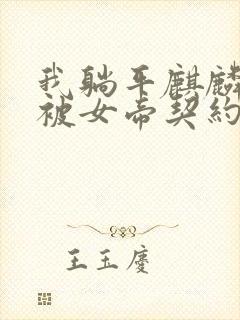 我躺平麒麟
被女帝契約
王玉慶